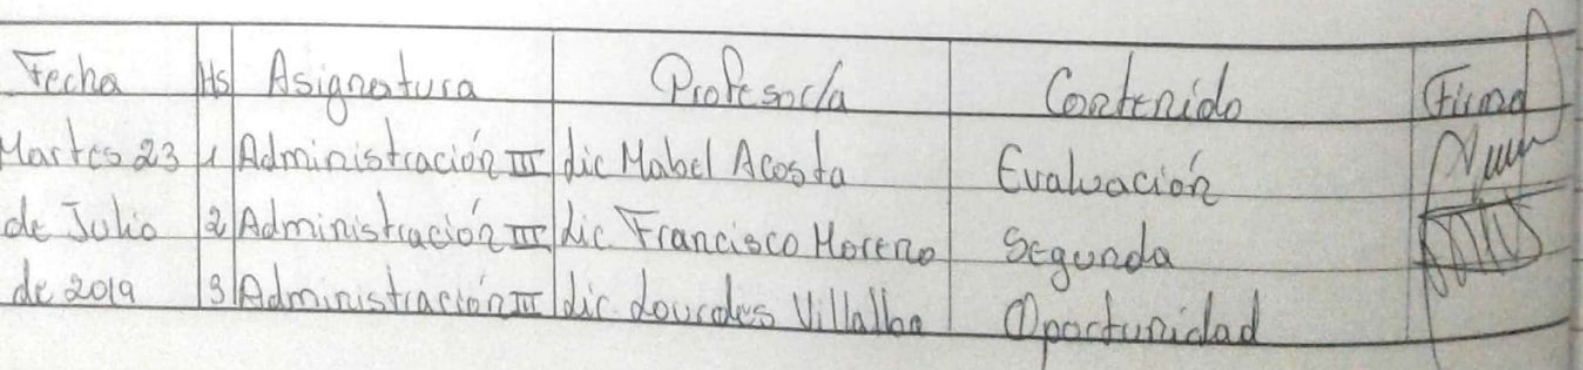 Fecha Hs Asignatura Profesor/a Contenido Firma
Martes 23 1 Administración III Lic Mabel Acosta Evaluación
de Julio 2 Administración III Lic. Francisco Moreno Segunda
de 2019 3 Administración III Lic. Lourdes Villalba Oportunidad